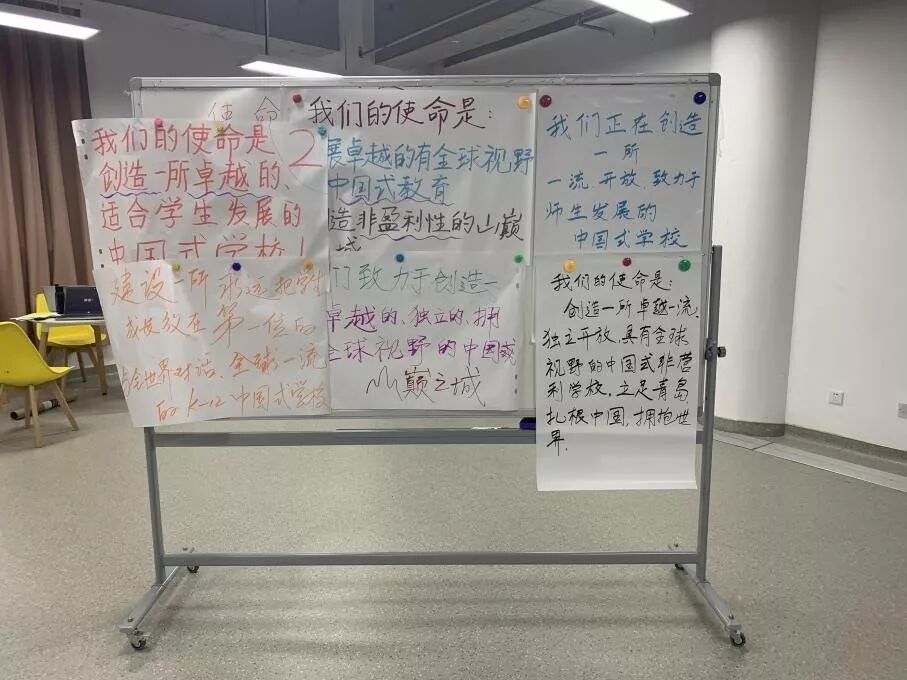 使命
我们的使命是
创造一所卓越的、
适合学生发展的
中国式学校！
2
我们的使命是：
展卓越的有全球视野
中国式教育
造非盈利性的山巅
城
我们正在创造
一所
一流、开放、致力于
师生发展的
中国式学校
建设一所永远把学生
成长放在第一位的
与全世界对话、全球一流
的K-12中国式学校
们致力于创造一
卓越的、独立的、拥
全球视野的中国式
山巅之城
我们的使命是：
创造一所卓越一流、
独立开放，具有全球
视野的中国式非营
利学校，立足青岛，
扎根中国，拥抱世
界．